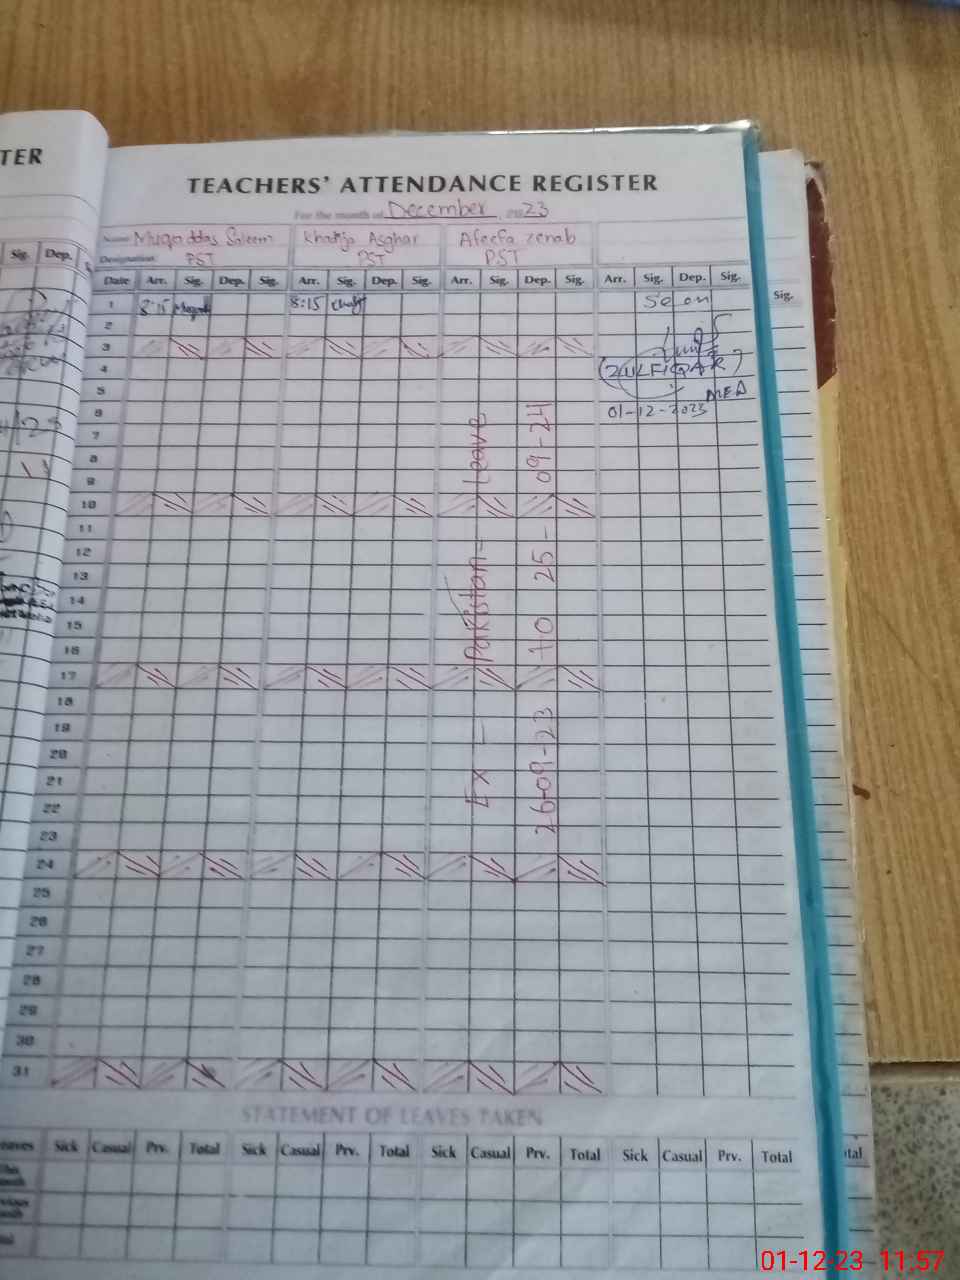 TER
TEACHERS' ATTENDANCE REGISTER
For the month of December, 2023
Name Muqaddas Saleem Khadija Asghar Afeefa Zenab
Designation: PST PST PST
Sig. Dep.
Date Arr. Sig. Dep. Sig. Arr. Sig. Dep. Sig. Arr. Sig. Dep. Sig. Arr. Sig. Dep. Sig.
Sig.
1 8:15 8:15 Seen
2
3
4 (ZULFIQAR)
5 MEA
6 01-12-2023
7
8
9
10
11
12
13
14
15
16
17
18
19
20
21
22
23
24
25
26
27
28
29
30
31
Ex = Pakistan = Leave
26-09-23 to 25-09-24
STATEMENT OF LEAVES TAKEN
eaves Sick Casual Prv. Total Sick Casual Prv. Total Sick Casual Prv. Total Sick Casual Prv. Total
otal
01-12-23 11:57